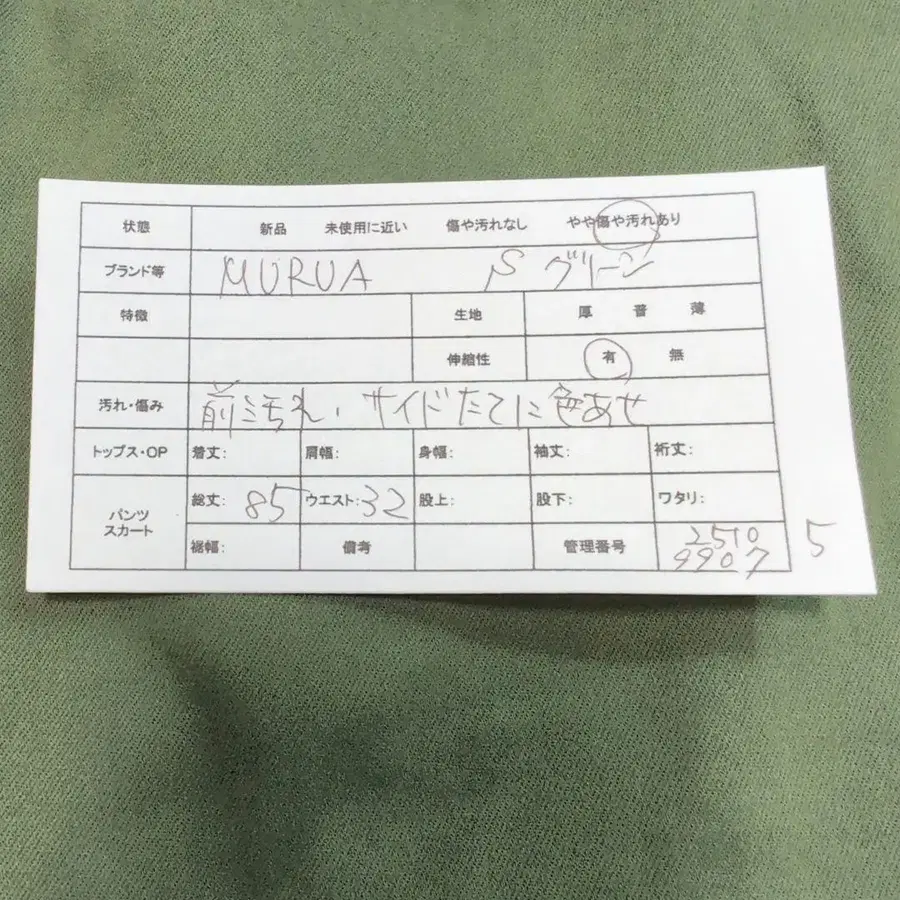 状態 新品 未使用に近い 傷や汚れなし やや傷や汚れあり
ブランド等 MURUA S グリーン
特徴 生地 厚 普 薄
伸縮性 有 無
汚れ・傷み 前汚れ、サイドたてに色あせ
トップス・OP 着丈: 肩幅: 身幅: 袖丈: 裄丈:
パンツ スカート 総丈: 85 ウエスト: 32 股上: 股下: ワタリ:
裾幅: 備考 管理番号 2510 9907 5